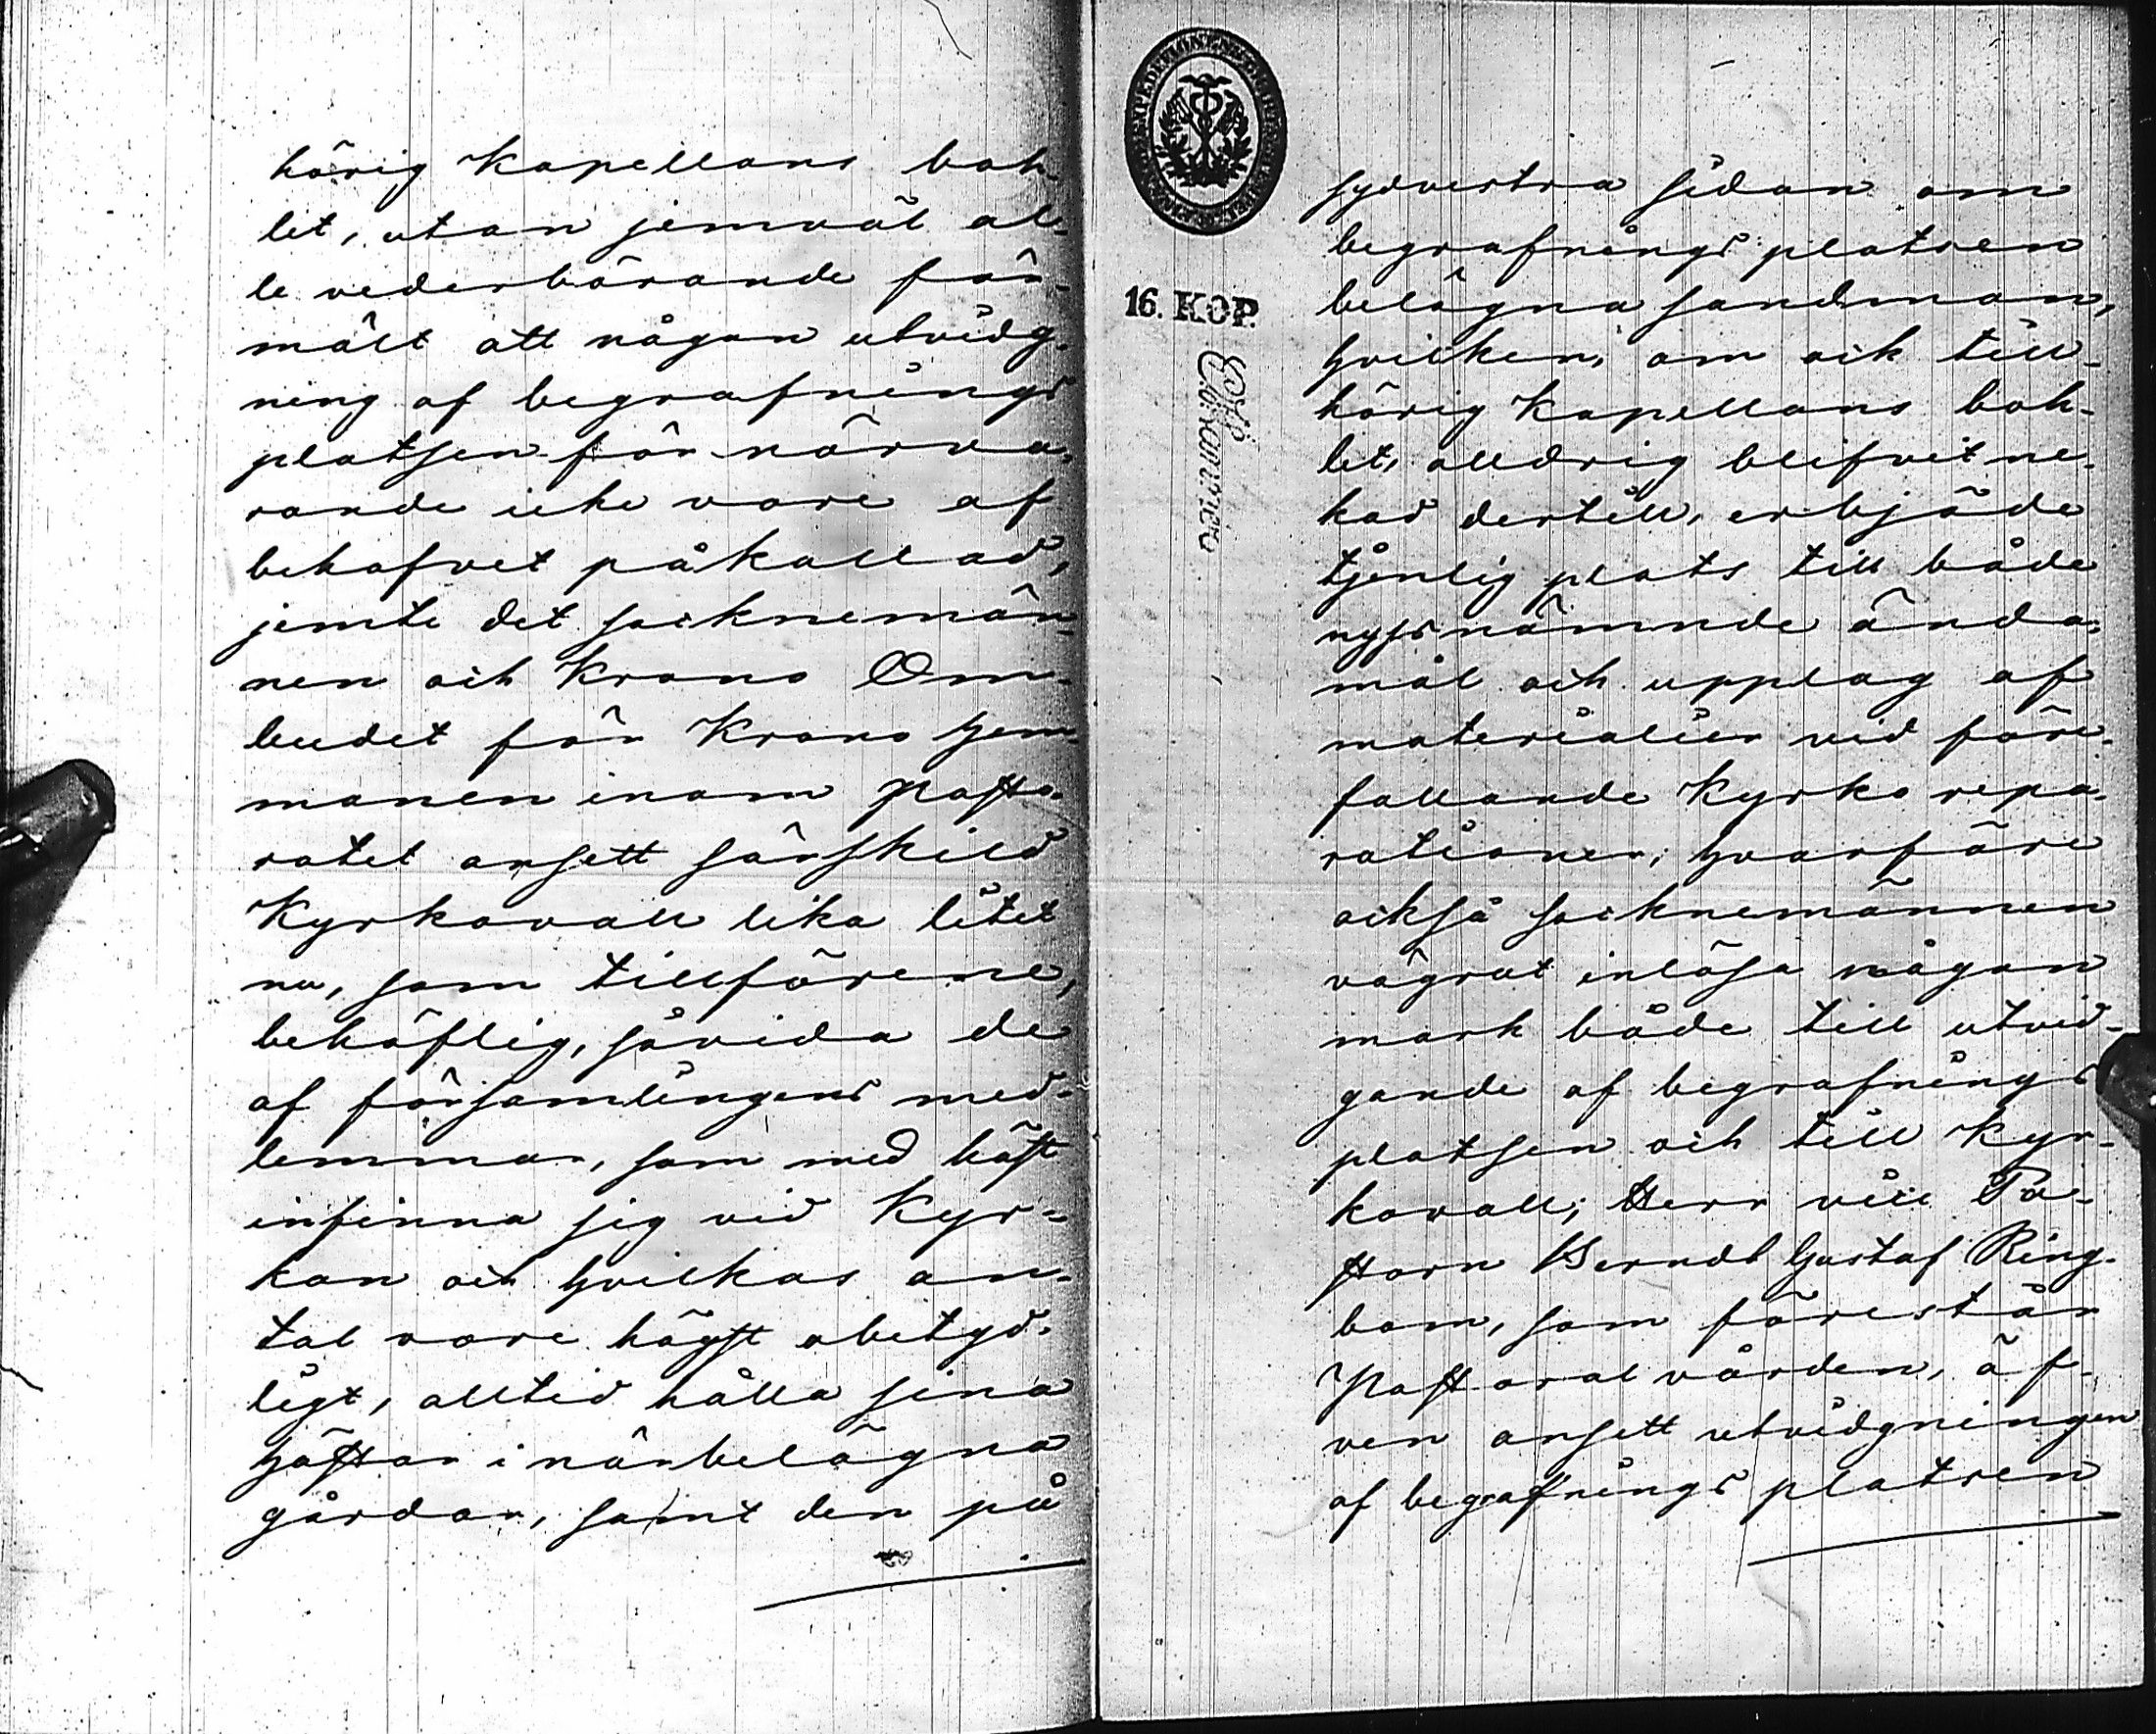 hörig Kapellans boh-
let, utan jemväl al-
le vederbörande för-
mält att någon utvidg-
ning af begrafnings
platsen för närva-
rande icke vore af
behofvet påkallad,
jemte det socknemän-
nen och Krono Om-
budet för Krono hem-
manen inom Pasto-
ratet ansett särskild
Kyrkovall lika litet
nu, som tillförene,
behöflig, såvida de
af församlingens med-
lemmar, som med häst
infinna sig vid Kyr-
kan och hvilkas an-
tal vore högst obetyd-
ligt, alltid hålla sina
hästar i närbelägna
gårdar, samt den på
16. KOP.
sydvestra sidan om
begrafnings platsen
belägna sandmon,
hvilken, om och till-
hörig Kapellans boh-
let, alldrig blifvit ne-
kad dertill, erbjöde
tjenlig plats till både
nyssnämnde ända-
mål och upplag af
materialier vid före-
fallande Kyrko repa-
rationer; hvarföre
också socknemännen
vägrat inlösa någon
mark både till utvid-
gande af begrafnings
platsen och till Kyr-
kovall; Herr vice Pa-
storn Berndt Gustaf Ring-
bom, som förestår
Pastoral vården, äf-
ven ansett utvidgningen
af begrafnings platsen